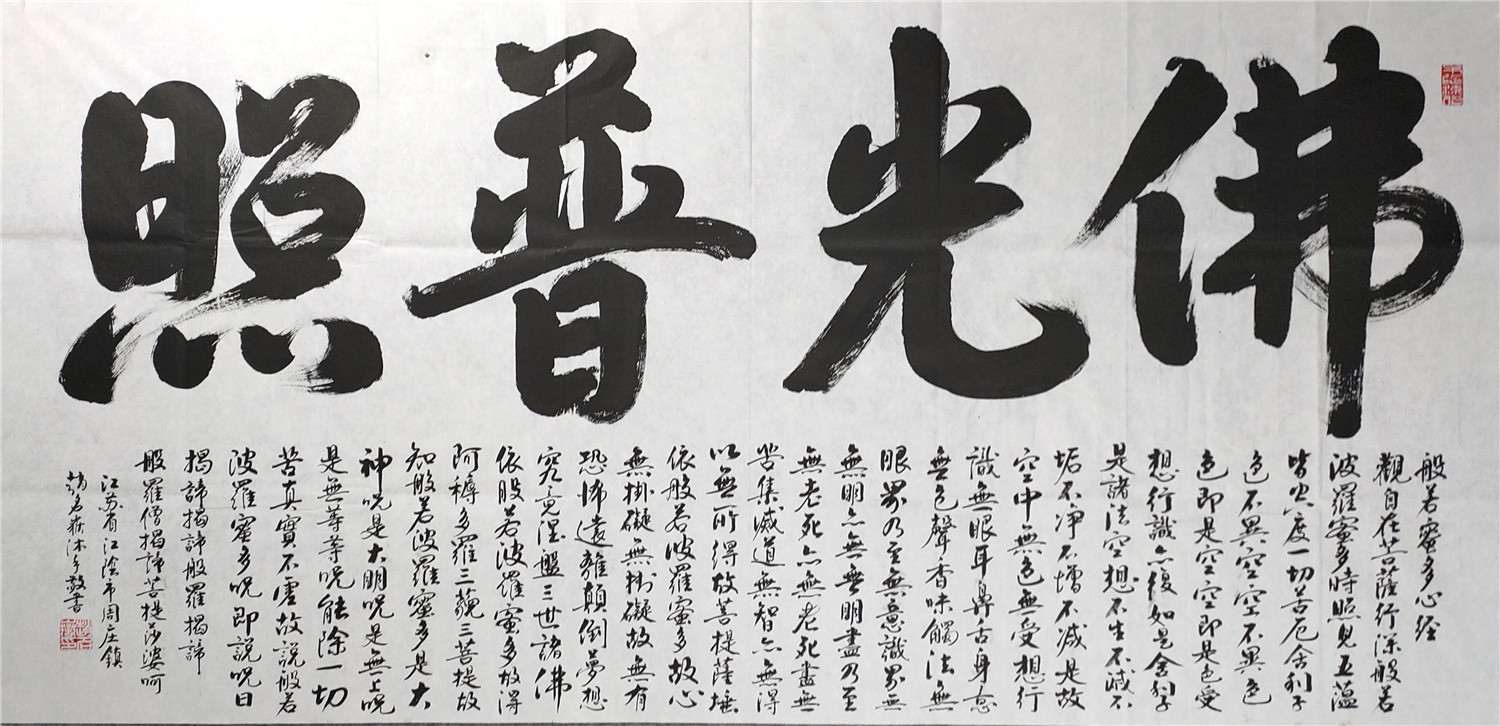 佛光普照
般若蜜多心經
觀自在菩薩行深般若
波羅蜜多時照見五蘊
皆空度一切苦厄舍利子
色不異空空不異色
色即是空空即是色受
想行識亦復如是舍利子
是諸法空想不生不滅不
垢不净不增不减是故
空中無色無受想行
識無眼耳鼻舌身意
無色聲香味觸法無
眼界乃至無意識界無
無明亦無無明盡乃至
無老死亦無老死盡無
苦集滅道無智亦無得
以無所得故菩提薩埵
依般若波羅蜜多故心
無掛礙無掛礙故無有
恐怖遠離顛倒夢想
究竟涅盤三世諸佛
依般若波羅蜜多故得
阿耨多羅三藐三菩提故
知般若波羅蜜多是大
神咒是大明咒是無上咒
是無等等咒能除一切
苦真實不虛故說般若
波羅蜜多咒即說咒曰
揭諦揭諦般羅揭諦
般羅僧揭諦菩提莎婆呵
江蘇省江陰市周庄鎮
沐手敬書